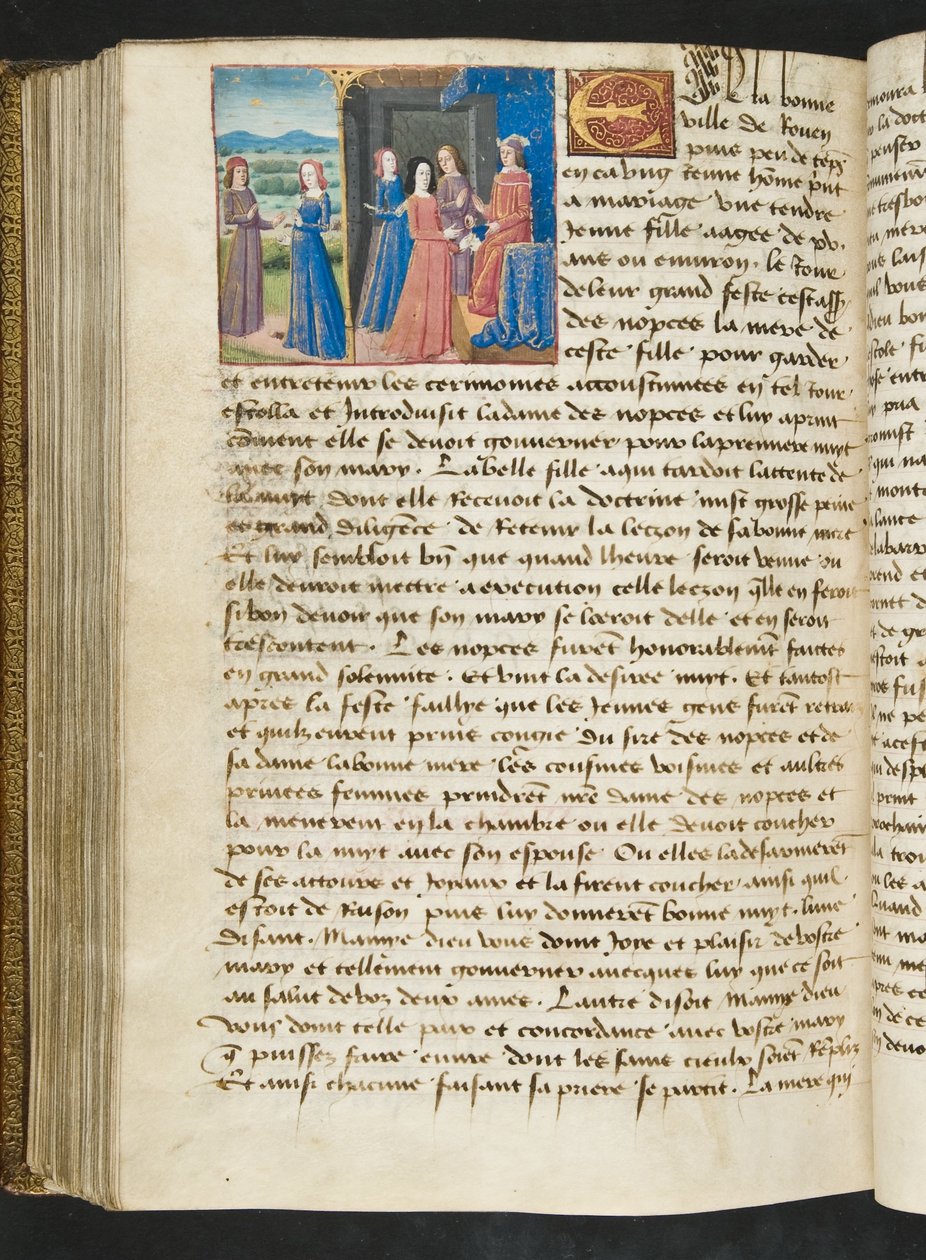 En la bonne
ville de Rouen
puis peu de tēps
en ca vng ieune hōme print
a mariage vne tendre
Jeune fille aagee de xv.
ans ou enuiron. le Jour
de leur grand feste cestass̄
des nopces la mere de
ceste fille pour garder
et entretenir les cerimonies accoustumees en tel Jour
escolla et Introduisit la dame des nopces et luy aprint
cōment elle se deuoit gouuerner pour la premiere nuyt
auec son mary. La belle fille a qui tardoit lattente de
la nuyt dont elle Receuoit la doctrine mist grosse peine
et grand diligēce de Retenir la leczon de sa bonne mere
Et luy sembloit bn̄ que quand lheure seroit venue ou
elle deuroit mettre a execution celle leczon q̄lle en feroit
si bon deuoir que son mary se loeroit delle et en seroit
trescontent. Les nopces furēt honorablemēt faictes
en grand solennite. Et vint la desiree nuyt. Et tantost
apres la feste faillye que les Jeunes gens furēt retraiz
et quilz eurent prins congie du sire des nopces et de
sa dame la bonne mere les cousines voisines et aultres
priuees femmes prindrēt nr̄e dame des nopces et
la menerent en la chambre ou elle deuoit coucher
pour la nuyt auec son espouse Ou elles la desarmerēt
de ses attours et Joyaux et la firent coucher ainsi quil
estoit de Raison puis luy donnerēt bonne nuyt. lune
disant. Mamye dieu vous doint Joye et plaisir de vostre
mary et tellement gouuerner auecques luy que ce soit
au salut de voz deux ames. Lautre disoit Mamye dieu
vous doint telle paix et concordance auec vostre mary
q̄ puissez faire euure dont les sains cieulx soiēt Rēpliz
Et ainsi chacune faisant sa priere se partit. La mere qui